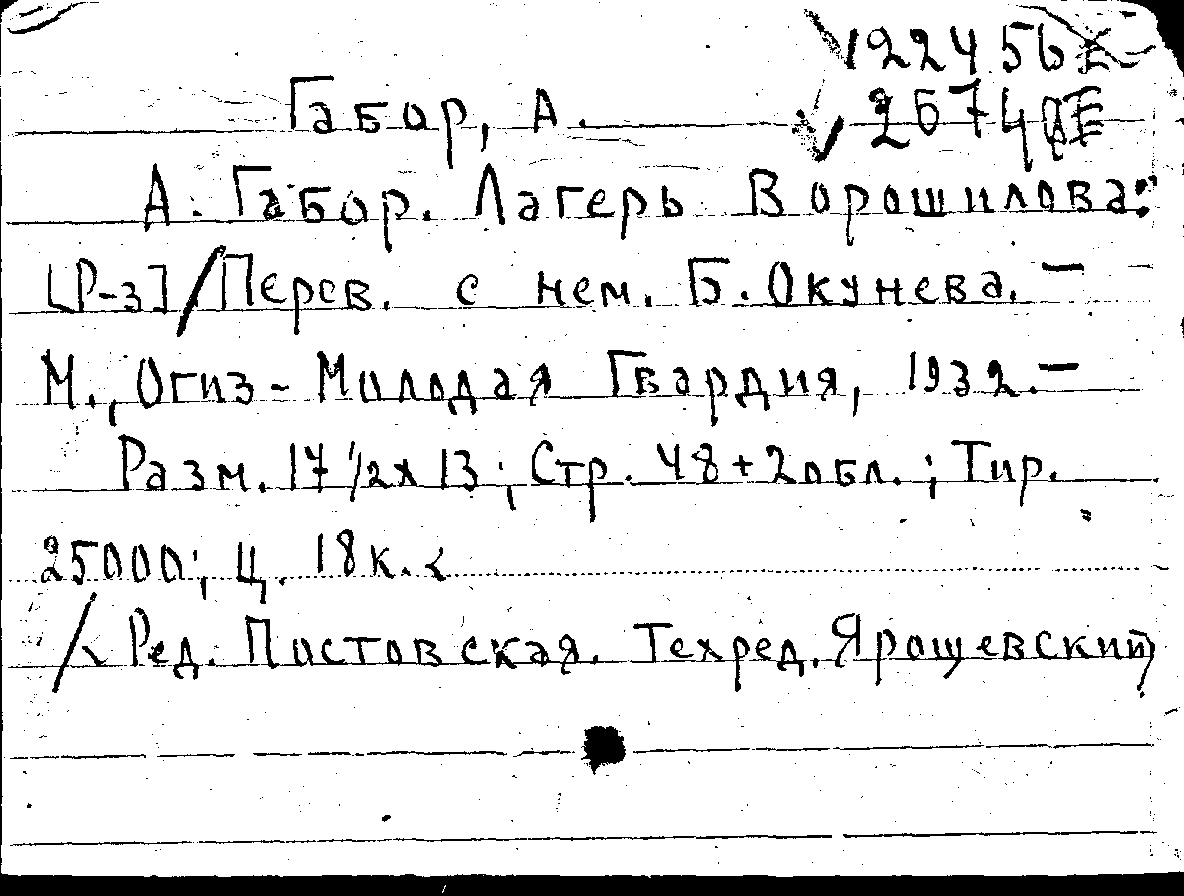 √122456
Габор, А. √
А. Габор. Лагерь Ворошилова:
[Р-з]/Перев. с нем. Б. Окунева. —
М., Огиз - Молодая Гвардия, 1932. —
Разм. 17 1/2 х 13; Стр. 48+2 обл.; Тир.
25000; Ц. 18 к. <
/< Ред. Постовская. Техред. Ярошевский